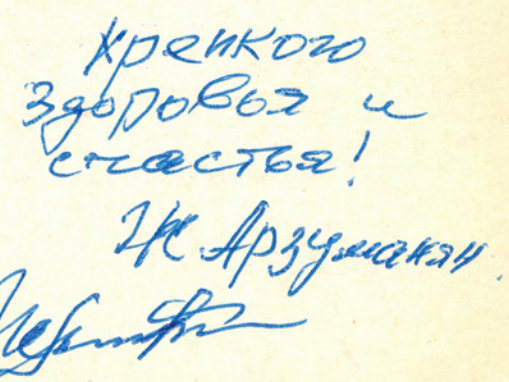 Крепкого
здоровья и
счастья!
Ж Арзуманян.